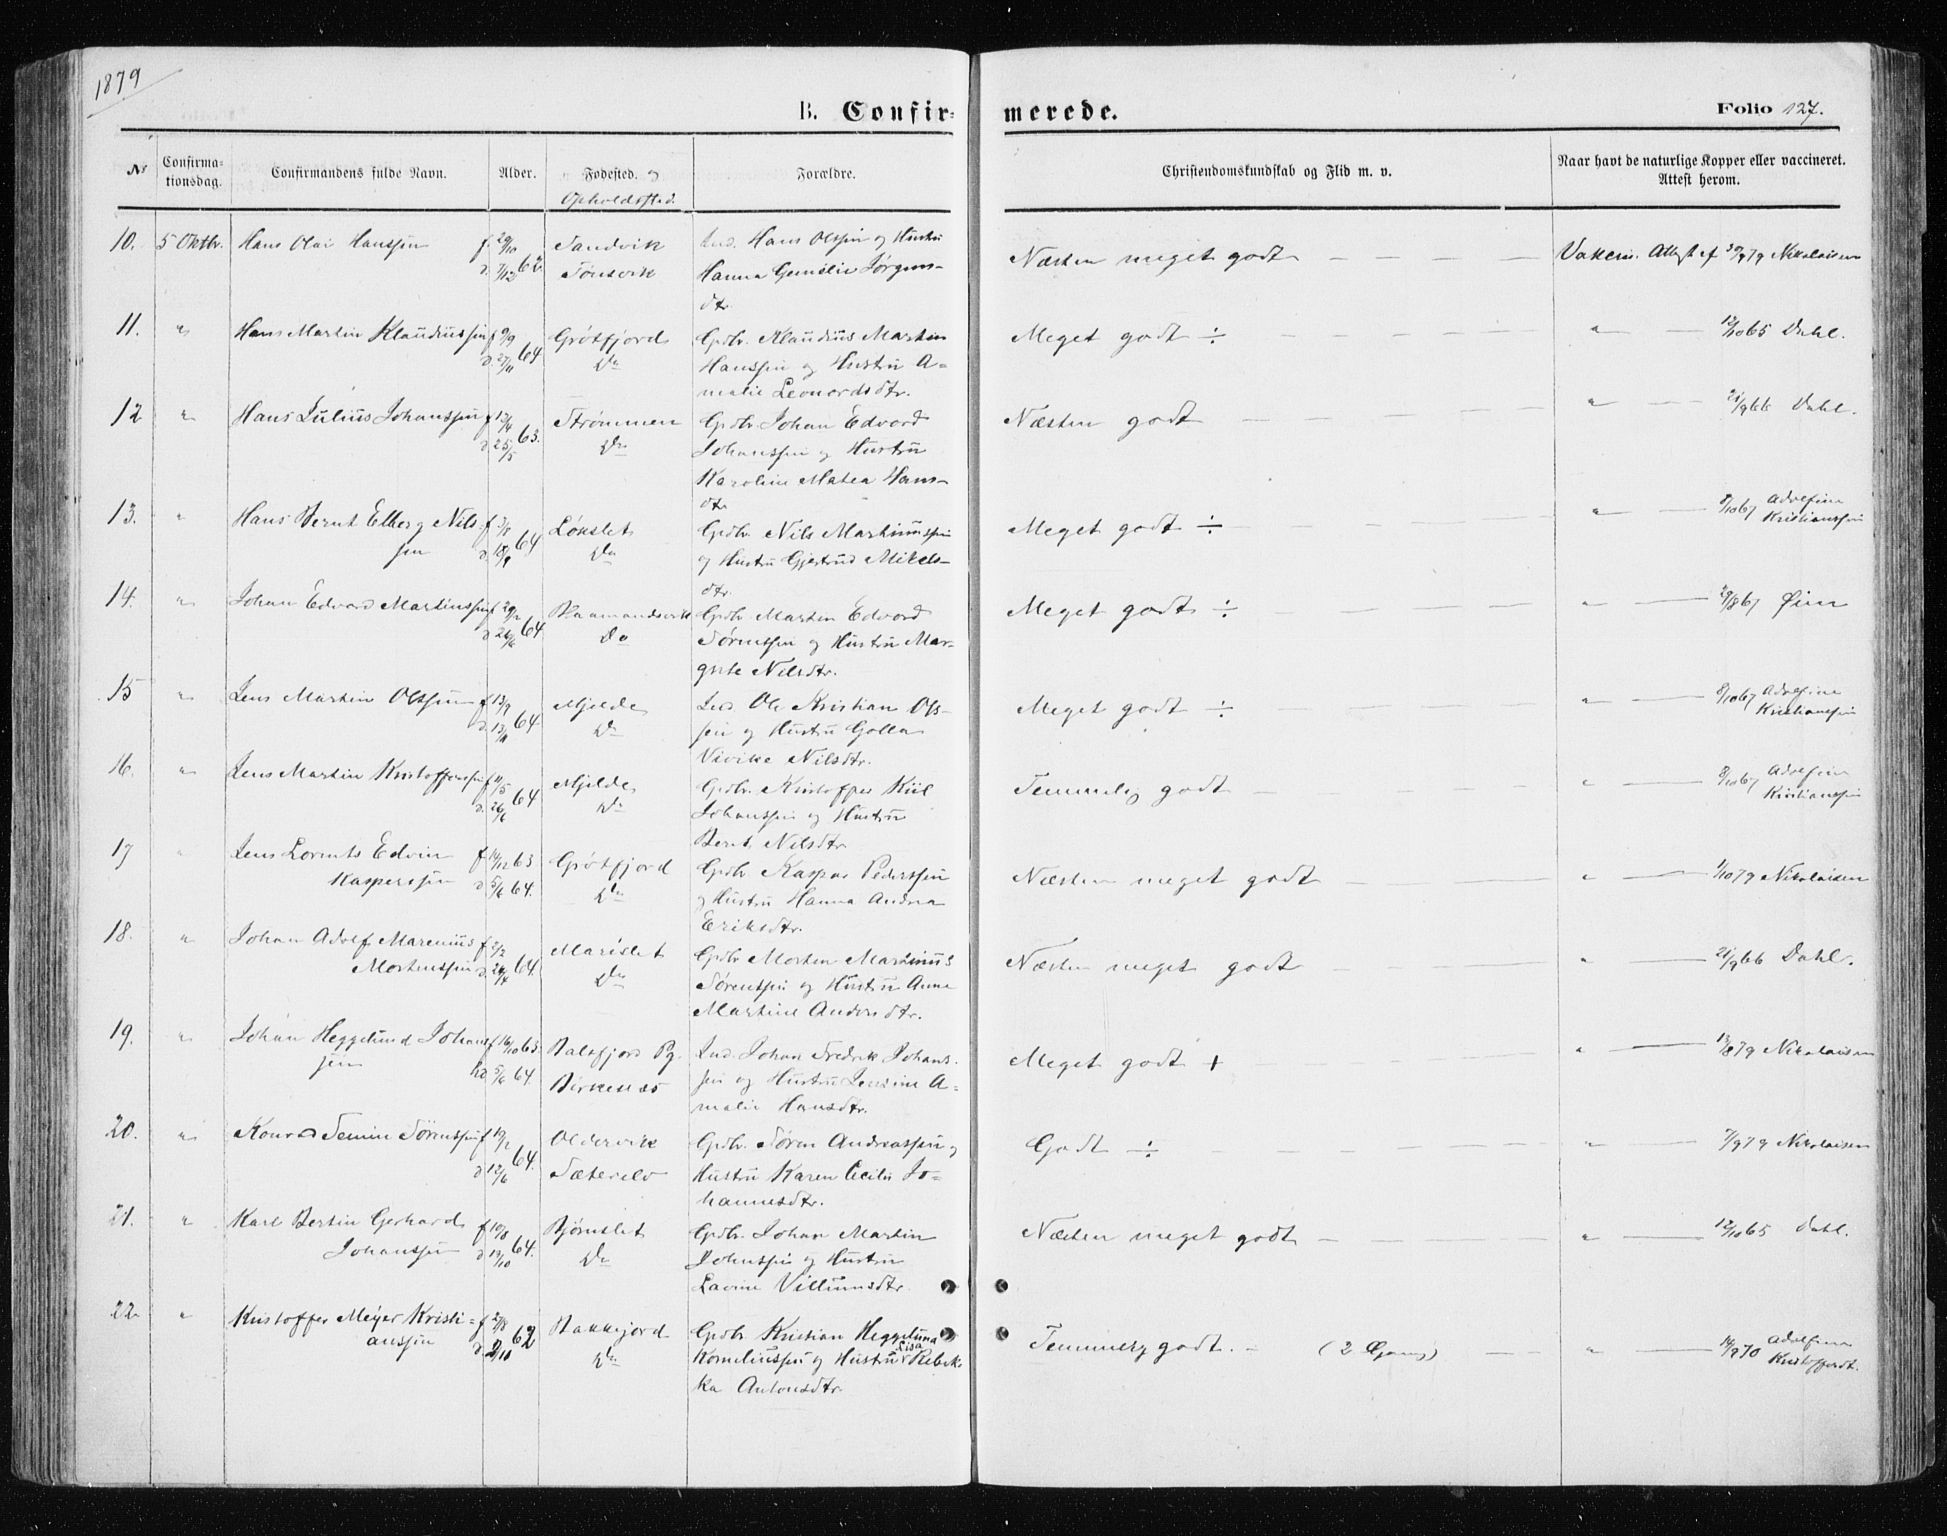 1879
B. Confir-
merede.
Folio 127.
No
Confirmationsdag.
Confirmandens fulde Navn.
Alder.
Fødested. og Opholdssted.
Forældre.
Christendomskundskab og Flid m. v.
Naar havt de naturlige Kopper eller vaccineret. Attest herom.
10. 5 Oktbr. Hans Olai Hanssen f. 29/10 d. 7/12 62 Sandvik Tønsvik Ind. Hans Olssen og Hustru
Hanna Gemalie Jørgens-
dtr.
Næsten meget godt — — — Vakcin. Attest af 30/9 79 Nikolaisen
11. " Hans Martin Klaudiussen f 9/9 d. 27/11 64 Grøtfjord Do Gpdbr. Klaudius Martin
Hanssen og Hustru A-
malie Leonardsdtr.
Meget godt ÷ — — — " — 12/10 65 Dahl.
12 " Hans Julius Johanssen f 13/4 d. 25/5 63. Strømmen Do Gpdbr. Johan Edvard
Johanssen og Hustru
Karoline Matea Hans-
dtr.
Næsten godt — — — " — 21/9 66 Dahl.
13. " Hans Bernt Elberg Nils-
sen f 3/8 d. 18/9 64 Løkslet Do Gpdbr. Nils Martinussen
og Hustru Gjertrud Mikels-
dtr.
Meget godt ÷ — — — " — 8/10 67 Adolfine Kristianssen
14. " Johan Edvard Martinssen f 29/2 d. 26/6 64 Kaamandsvik Do Gpdbr. Martin Edvard
Sørenssen og Hustru Mar-
grete Nilsdtr.
Meget godt ÷ — — — " — 29/8 67 Øien
15 " Jens Martin Olssen f 13/9 d. 13/11 64 Mjelde Do Ind Ole Kristian Ols-
sen og Hustru Golla
Vivike Nilsdtr.
Meget godt ÷ — — — " — 8/10 67 Adolfine Kristianssen
16. " Jens Martin Kristofferssen f 11/5 d. 26/6 64 Mjelde Do Gpdbr. Kristoffer Kiil
Johanssen og Hustru
Bernt. Nilsdtr
Temmelig godt — — — " — 8/10 67 Adolfine Kristianssen
17 " Jens Lorents Edvin
Kasperssen f 14/12 63 d 5/6 64. Grøtfjord Do Gpdbr Kaspar Pederssen
og Hustru Hanna Andrea
Eriksdtr.
Næsten meget godt — — — " — 1/10 79 Nikolaisen
18. " Johan Adolf Marenius
Mortenssen f 2/2 d. 24/4 64. Marislet Do Gpdbr Morten Martinus
Sørenssen og Hustru Anne
Martine Andersdtr.
Næsten meget godt — — — " — 21/9 66 Dahl.
19. " Johan Heggelund Johans
sen f 16/10 63. hd 5/6 64. Balsfjord Pg. Birkenæs Ind. Johan Fredrik Johans.
sen og Hustru Jensine A-
malie Hansdtr.
Meget godt + — — — " — 13/8 79 Nikolaisen
20. " Konrad Semin Sørenssen f 19/2 d 12/6 64. Oldervik Sæterelv Gpdbr. Søren Andreassen og
Hustru Karen Cecilie Jo-
hannesdtr.
Godt ÷ — — — " — 7/9 79 Nikolaisen
21. " Karl Bertin Gerhard
Johanssen f 10/8 d 13/10 64. Bjørnslet Do Gpdbr. Johan Martin
Johnssen og Hustru
Lavine Villumsdtr.
Næsten meget godt — — — " — 12/10 65 Dahl.
22. " Kristoffer Meyer Kristi-
anssen f 2/8 d. 2/10 62 Bakkejord Do Gpdbr Kristian Heggelund
Korneliussen og Hustru Lisa Rebek-
ka Antonsdtr.
Temmelig godt. — (2 Gang) — " — 14/9 70 Adolfine Kristoffersdt.